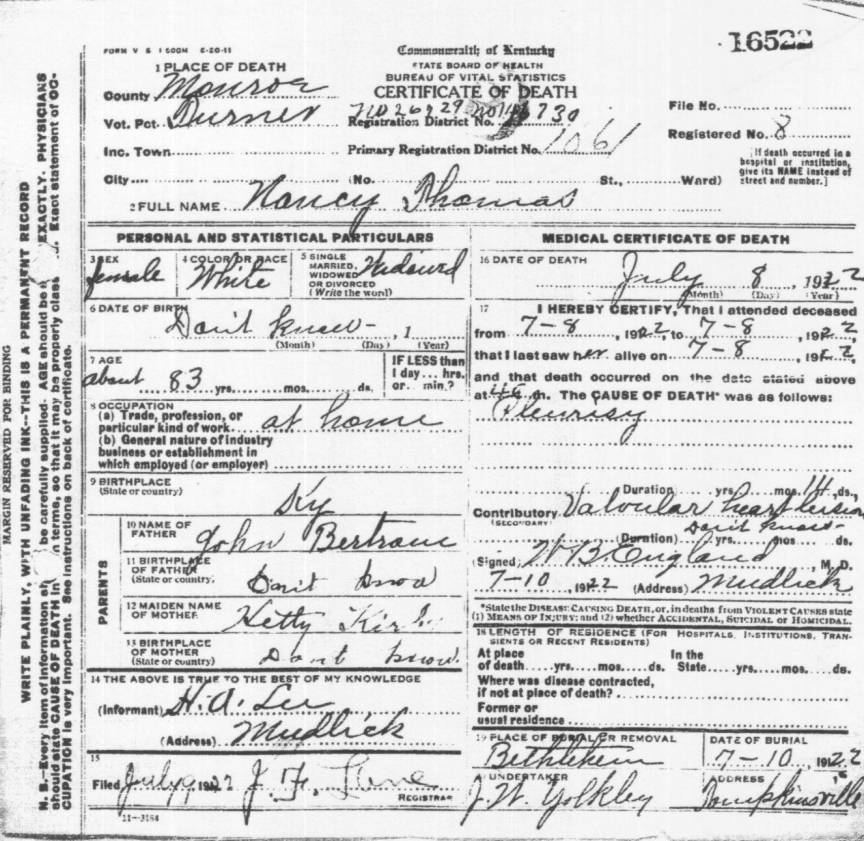 FORM V S 1 500M 6-20-11
Commonwealth of Kentucky
STATE BOARD OF HEALTH
BUREAU OF VITAL STATISTICS
CERTIFICATE OF DEATH
16522
1 PLACE OF DEATH
County Monroe
Vot. Pct. Turner
Registration District No. 730
File No.
Inc. Town
Primary Registration District No. 1061
Registered No. 8
City (No. St., Ward)
[If death occurred in a
hospital or institution,
give its NAME instead of
street and number.]
2 FULL NAME Nancy Thomas
PERSONAL AND STATISTICAL PARTICULARS
3 SEX female
4 COLOR OR RACE White
5 SINGLE
MARRIED,
WIDOWED
OR DIVORCED
(Write the word)
Widowed
6 DATE OF BIRTH
Don't know- , 1
(Month) (Day) (Year)
7 AGE
about 83 yrs. mos. ds.
IF LESS than
1 day... hrs.
or. min.?
8 OCCUPATION
(a) Trade, profession, or
particular kind of work at home
(b) General nature of industry
business or establishment in
which employed (or employer)
9 BIRTHPLACE
(State or country)
Ky
PARENTS
10 NAME OF
FATHER
John Bertram
11 BIRTHPLACE
OF FATHER
(State or country.
Don't know
12 MAIDEN NAME
OF MOTHER
Hetty
13 BIRTHPLACE
OF MOTHER
(State or country)
Dont know.
14 THE ABOVE IS TRUE TO THE BEST OF MY KNOWLEDGE
(Informant) H. A. Lee
(Address) Mudlick
15
Filed July 9 1922 J. F.
REGISTRAR
11-3184
MEDICAL CERTIFICATE OF DEATH
16 DATE OF DEATH
July 8 , 1922
(Month) (Day) (Year)
17 I HEREBY CERTIFY, That I attended deceased
from 7-8 , 1922, to 7-8 , 1922,
that I last saw her alive on 7-8 , 1922,
and that death occurred on the date stated above
at m. The CAUSE OF DEATH* was as follows:
Pleurisy
Duration yrs mos. 14 ds.,
Contributory Valvular heart lesion
(SECONDARY)
Don't know-
(Duration) yrs. mos ds.
(Signed) W B England , M. D.
7-10 , 1922 (Address) Mudlick
*State the DISEASE CAUSING DEATH, or, in deaths from VIOLENT CAUSES state
(1) MEANS OF INJURY; and (2) whether ACCIDENTAL, SUICIDAL or HOMICIDAL.
18 LENGTH OF RESIDENCE (FOR HOSPITALS, INSTITUTIONS, TRAN-
SIENTS OR RECENT RESIDENTS)
At place In the
of death yrs. mos. ds. State yrs. mos. ds.
Where was disease contracted,
if not at place of death?
Former or
usual residence
19 PLACE OF BURIAL OR REMOVAL
Bethlehem
DATE OF BURIAL
7-10 1922
UNDERTAKER
J. W. Yolkley
ADDRESS
Tompkinsville
MARGIN RESERVED FOR BINDING
WRITE PLAINLY, WITH UNFADING INK--THIS IS A PERMANENT RECORD
N. B.--Every item of information be carefully supplied. AGE should be EXACTLY. PHYSICIANS
should state CAUSE OF DEATH in terms, so that it may be properly class Exact statement of OC-
CUPATION is very important. See instructions on back of certificate.